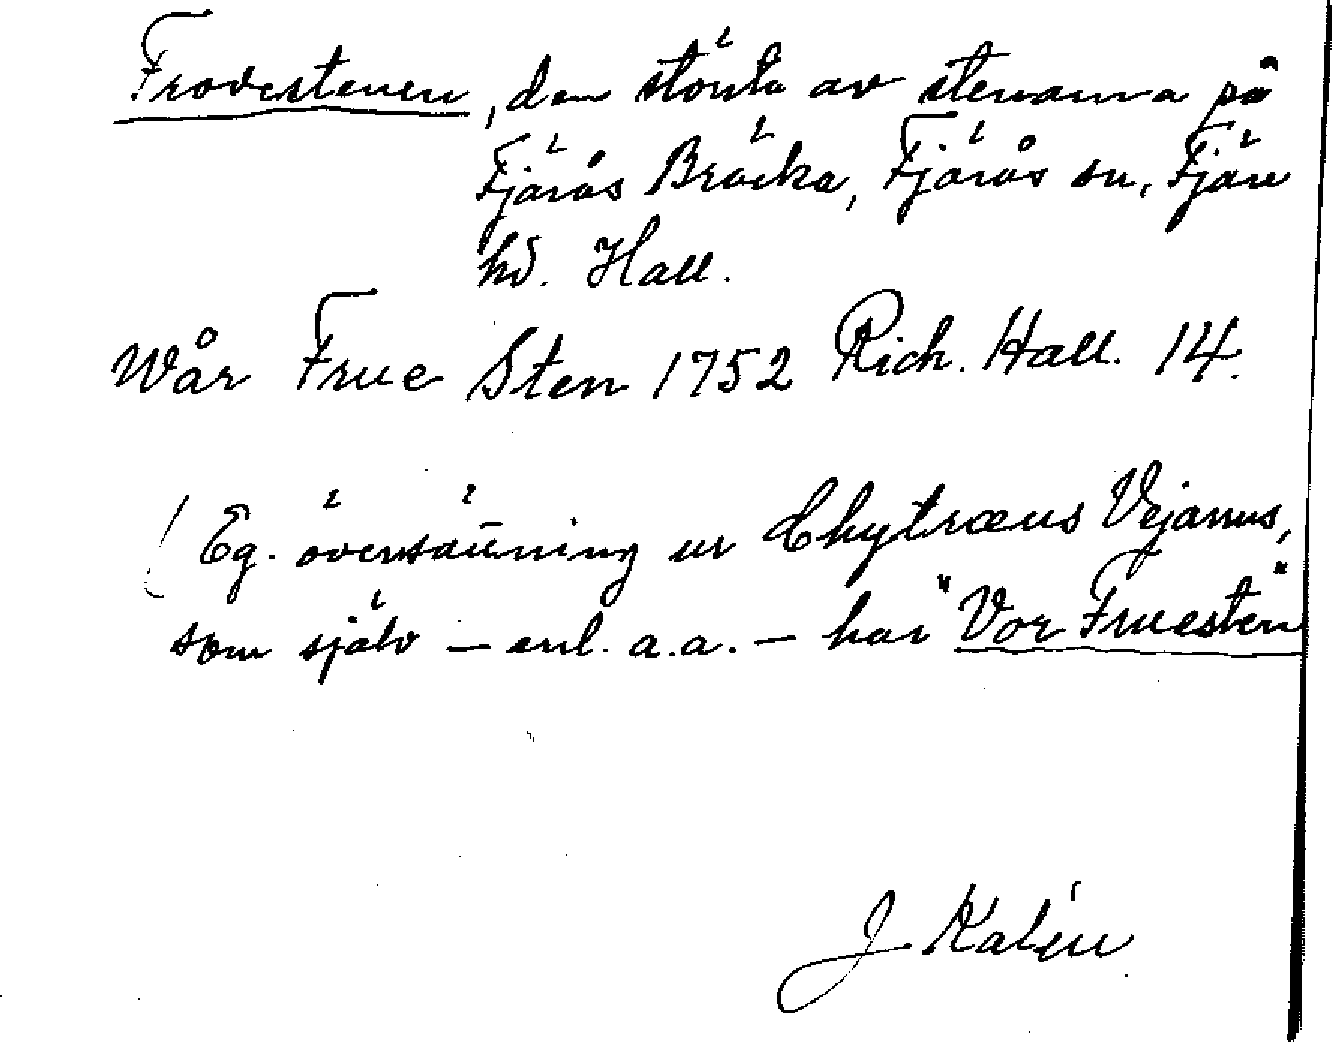 Frovestenen, den största av stenarna på
Fjärås Bräcka, Fjärås sn, Fjäre
hd. Hall.
Wår Frue Sten 1752 Rich. Hall. 14.
(Eg. översättning ur Chytræus Vejanus,
som själv – enl. a.a. – har "Vor Fruesten"
J Kalén